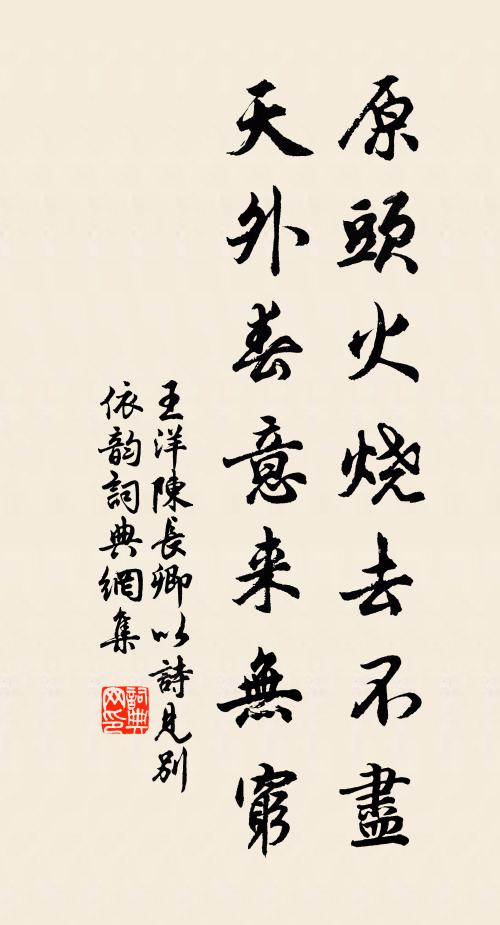 原頭火燒去不盡
天外春意来無窮
王洋陳長卿以詩見別
依韵詞典網集
詞典网印